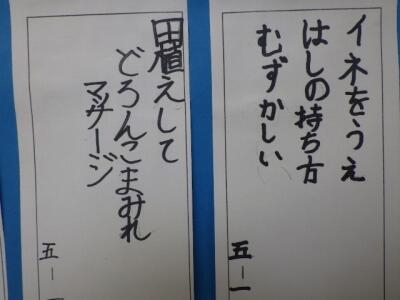 イネをうえ
はしの持ち方
むずかしい
五－一
田植えして
どろんこまみれ
マッサージ
五－